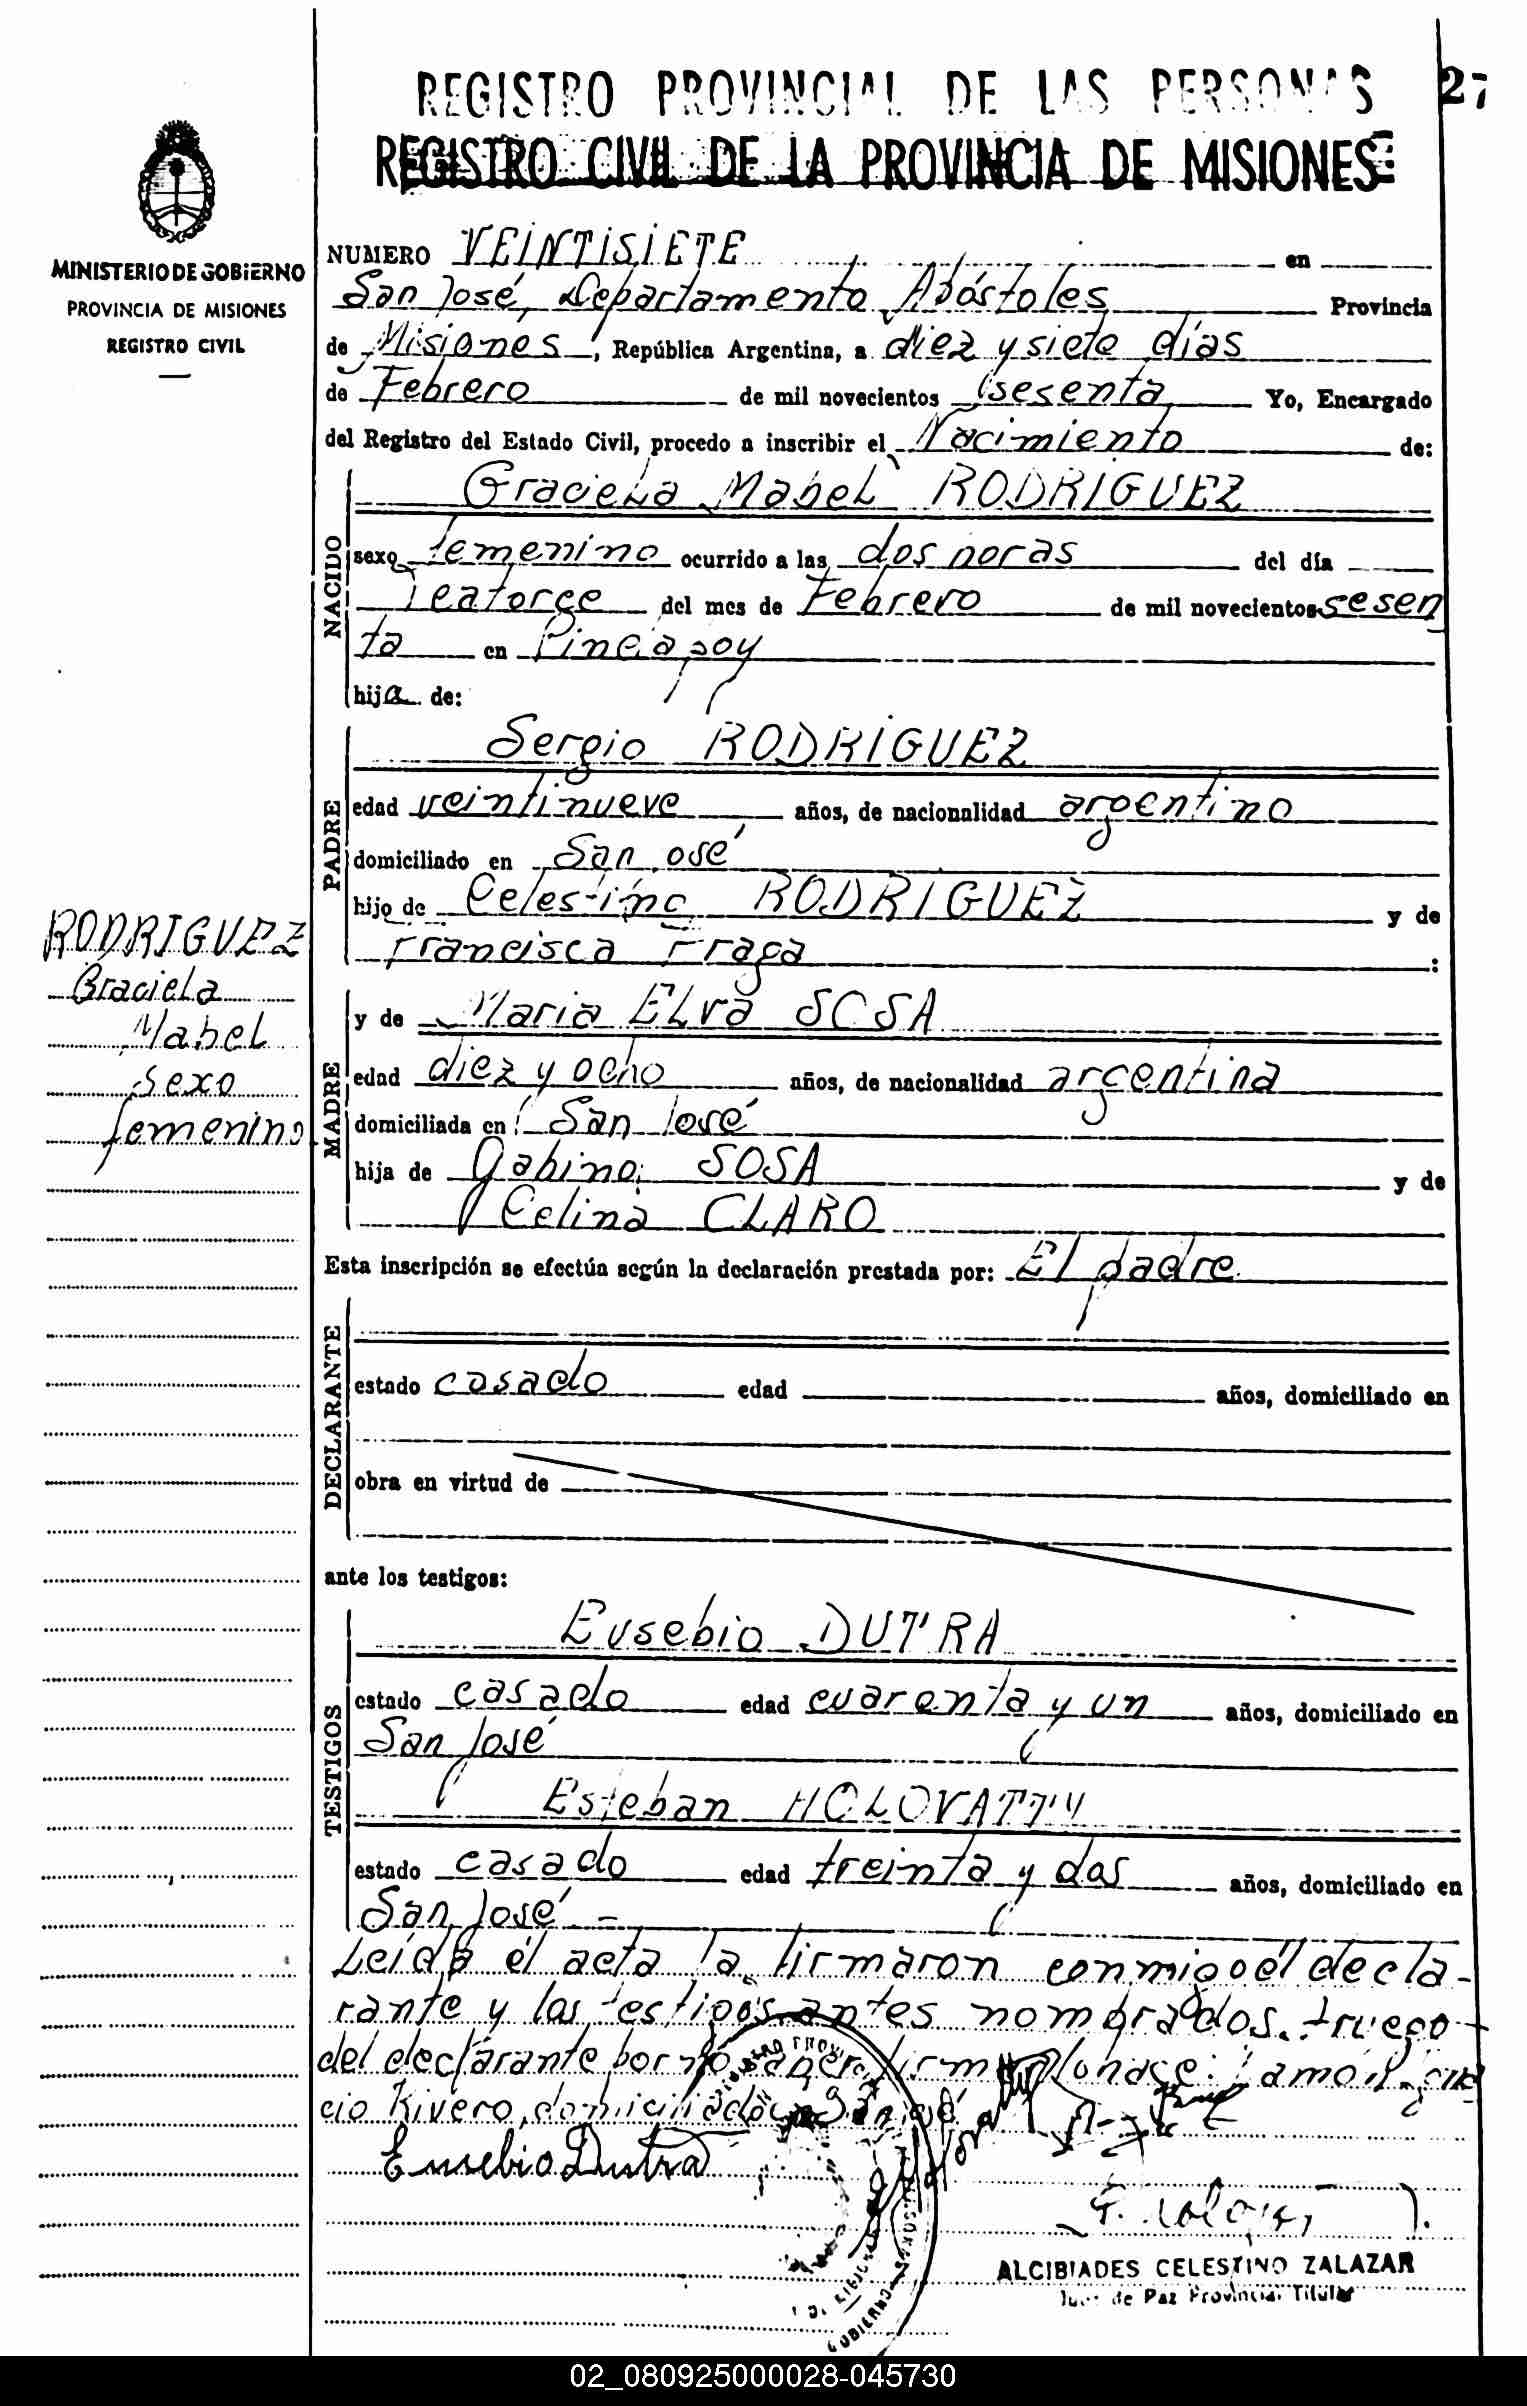 REGISTRO PROVINCIAL DE LAS PERSONAS
27
REGISTRO CIVIL DE LA PROVINCIA DE MISIONES
MINISTERIO DE GOBIERNO
PROVINCIA DE MISIONES
REGISTRO CIVIL
NUMERO VEINTISIETE en
San José, Departamento Apóstoles Provincia
de Misiones, República Argentina, a diez y siete días
de Febrero de mil novecientos sesenta Yo, Encargado
del Registro del Estado Civil, procedo a inscribir el Nacimiento de:
NACIDO
Graciela Mabel RODRIGUEZ
sexo femenino ocurrido a las dos horas del día
catorce del mes de Febrero de mil novecientos sesen
ta en Pindapoy
hija de:
PADRE
Sergio RODRIGUEZ
edad veintinueve años, de nacionalidad argentino
domiciliado en San José
hijo de Celestino RODRIGUEZ y de
Francisca Fraga :
MADRE
y de Maria ELva SOSA
edad diez y ocho años, de nacionalidad argentina
domiciliada en San José
hija de Gabino SOSA y de
Celina CLARO
RODRIGUEZ
Graciela
Mabel
Sexo
femenino
Esta inscripción se efectúa según la declaración prestada por: El padre
DECLARANTE
estado casado edad años, domiciliado en
obra en virtud de
ante los testigos:
TESTIGOS
Eusebio DUTRA
estado casado edad cuarenta y un años, domiciliado en
San José
Esteban HOLOVATTY
estado casado edad treinta y dos años, domiciliado en
San José. -
Leída el acta la firmaron conmigo el decla-
rante y los testigos antes nombrados. A ruego
del declarante por no saber firmar
cio Rivero, domiciliado en San José
Eusebio Dutra
ALCIBIADES CELESTINO ZALAZAR
Juez de Paz Provincial Titular
02_080925000028-045730